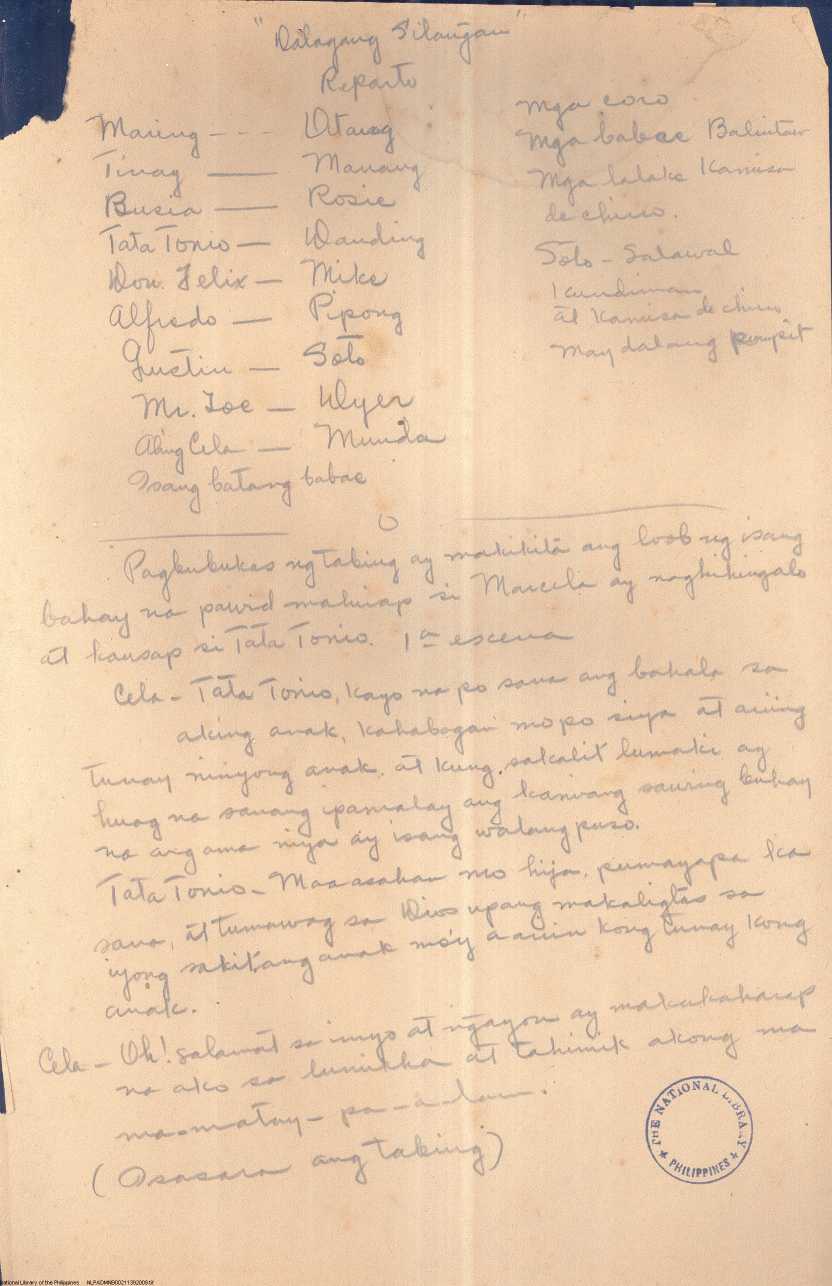 "Dalagang Silangan"
Reparto
Maring --- Atang
Tinay — Manang
Busia — Rosie
Tata Tonio — Wanding
Don. Felix — Mike
Alfredo — Pipong
Gustin — Soto
Mr. Joe — Dyer
Aling Cela — Munda
Isang batang babae
mga coro
mga babae Balintawak
mga lalake Kamisa
de chino.
Soto - Salawal
kundiman
at Kamisa de chino
may dalang pumpit
O
Pagbubukas ng tabing ay makikita ang loob ng isang
bahay na pawid mahirap si Marcela ay naghihingalo
at kausap si Tata Tonio. 1a escena
Cela - Tata Tonio, kayo na po sana ang bahala sa
aking anak, kahabagan mo po siya at ariing
tunay ninyong anak. at kung sakalit lumaki ay
huag na sanang ipamalay ang kanyang sariling buhay
na ang ama niya ay isang walang puso.
Tata Tonio - Maaasahan mo hija, pumayapa ka
sana, at tumawag sa Dios upang makaligtas sa
iyong sakit, ang anak mo'y aariin kong tunay kong
anak.
Cela - Oh! salamat sa inyo at ngayon ay makakaharap
na ako sa lumikha at tahimik akong ma
ma-matay - pa - a - lam.
(Isasara ang tabing)
THE NATIONAL LIBRARY
PHILIPPINES
National Library of the Philippines